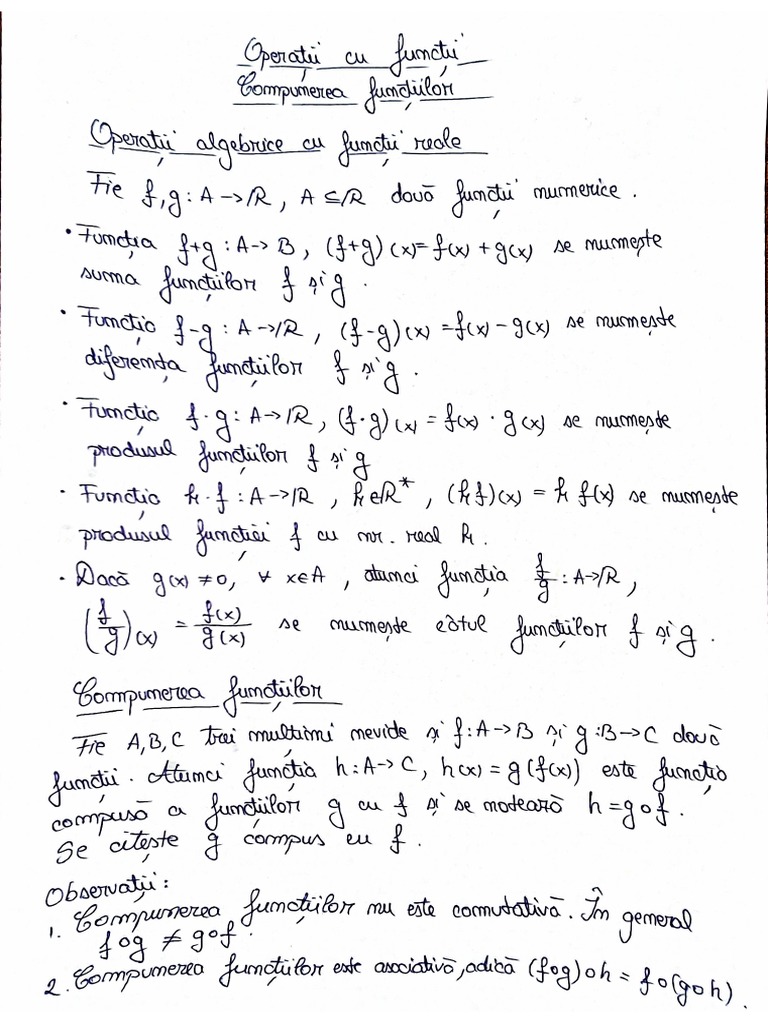 Operații cu funcții
Compunerea funcțiilor
Operații algebrice cu funcții reale
Fie f, g : A → ℝ, A ⊆ ℝ două funcții numerice.
• Funcția f+g : A → B, (f+g)(x) = f(x) + g(x) se numește
suma funcțiilor f și g.
• Funcția f-g : A → ℝ, (f-g)(x) = f(x) - g(x) se numește
diferența funcțiilor f și g.
• Funcția f·g : A → ℝ, (f·g)(x) = f(x) · g(x) se numește
produsul funcțiilor f și g
• Funcția k·f : A → ℝ, k ∈ ℝ*, (kf)(x) = k f(x) se numește
produsul funcției f cu nr. real k.
• Dacă g(x) ≠ 0, ∀ x ∈ A, atunci funcția f/g : A → ℝ,
(f/g)(x) = f(x)/g(x) se numește câtul funcțiilor f și g.
Compunerea funcțiilor
Fie A, B, C trei mulțimi nevide și f : A → B și g : B → C două
funcții. Atunci funcția h : A → C, h(x) = g(f(x)) este funcția
compusă a funcțiilor g cu f și se notează h = g∘f.
Se citește g compus cu f.
Observații:
1. Compunerea funcțiilor nu este comutativă. În general
f∘g ≠ g∘f.
2. Compunerea funcțiilor este asociativă, adică (f∘g)∘h = f∘(g∘h).